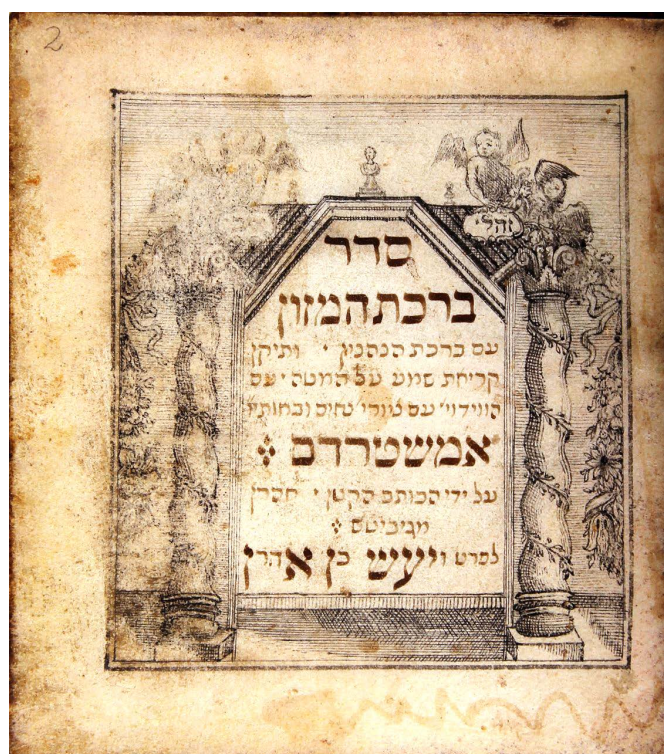 2
סדר
ברכת המזון
עם ברכת הנהנין ׳ ותיקן
קריאת שמע על המטה ׳ עם
הווידוי׳ עם נאים ובאותיו
אמשטרדם
על ידי הכותב הקטן ׳ אהרן
מגיביטש
לפרט ויעש כן אהרן